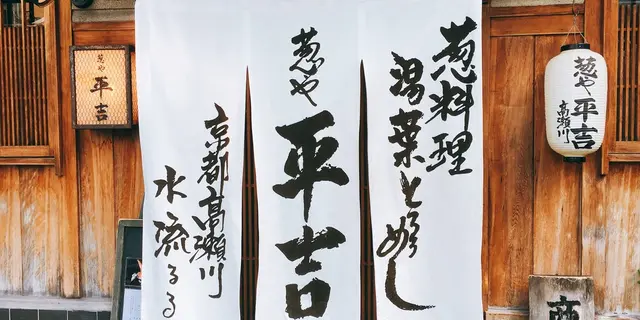 葱料理
湯葉とめし
葱や
平吉
京都高瀬川
水流るる
葱や
平吉
葱や平吉
高瀬川